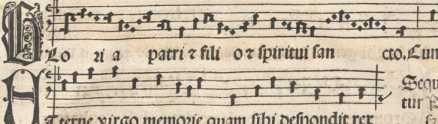 Glo ri a patri ⁊ fili o ⁊ spiritui san cto. Cum
Sequ
tur
Aterne virgo memorie quam sibi despondit rex